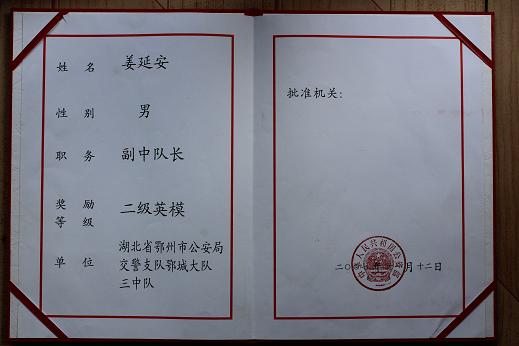 姓 名 姜延安
性 别 男
职 务 副中队长
奖 励
等 级
二级英模
单 位
湖北省鄂州市公安局
交警支队鄂城大队
三中队
批准机关：
中华人民共和国公安部
二〇 年 月十二日